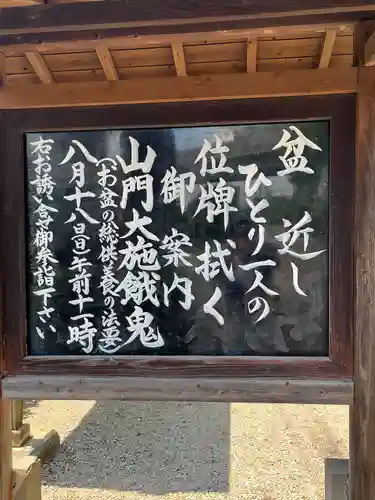 盆近し
ひとり一人の
位牌拭く
御案内
山門大施餓鬼
(お盆の総供養の法要)
八月十八日(日)午前十一時
右お誘い合せ御参詣下さい